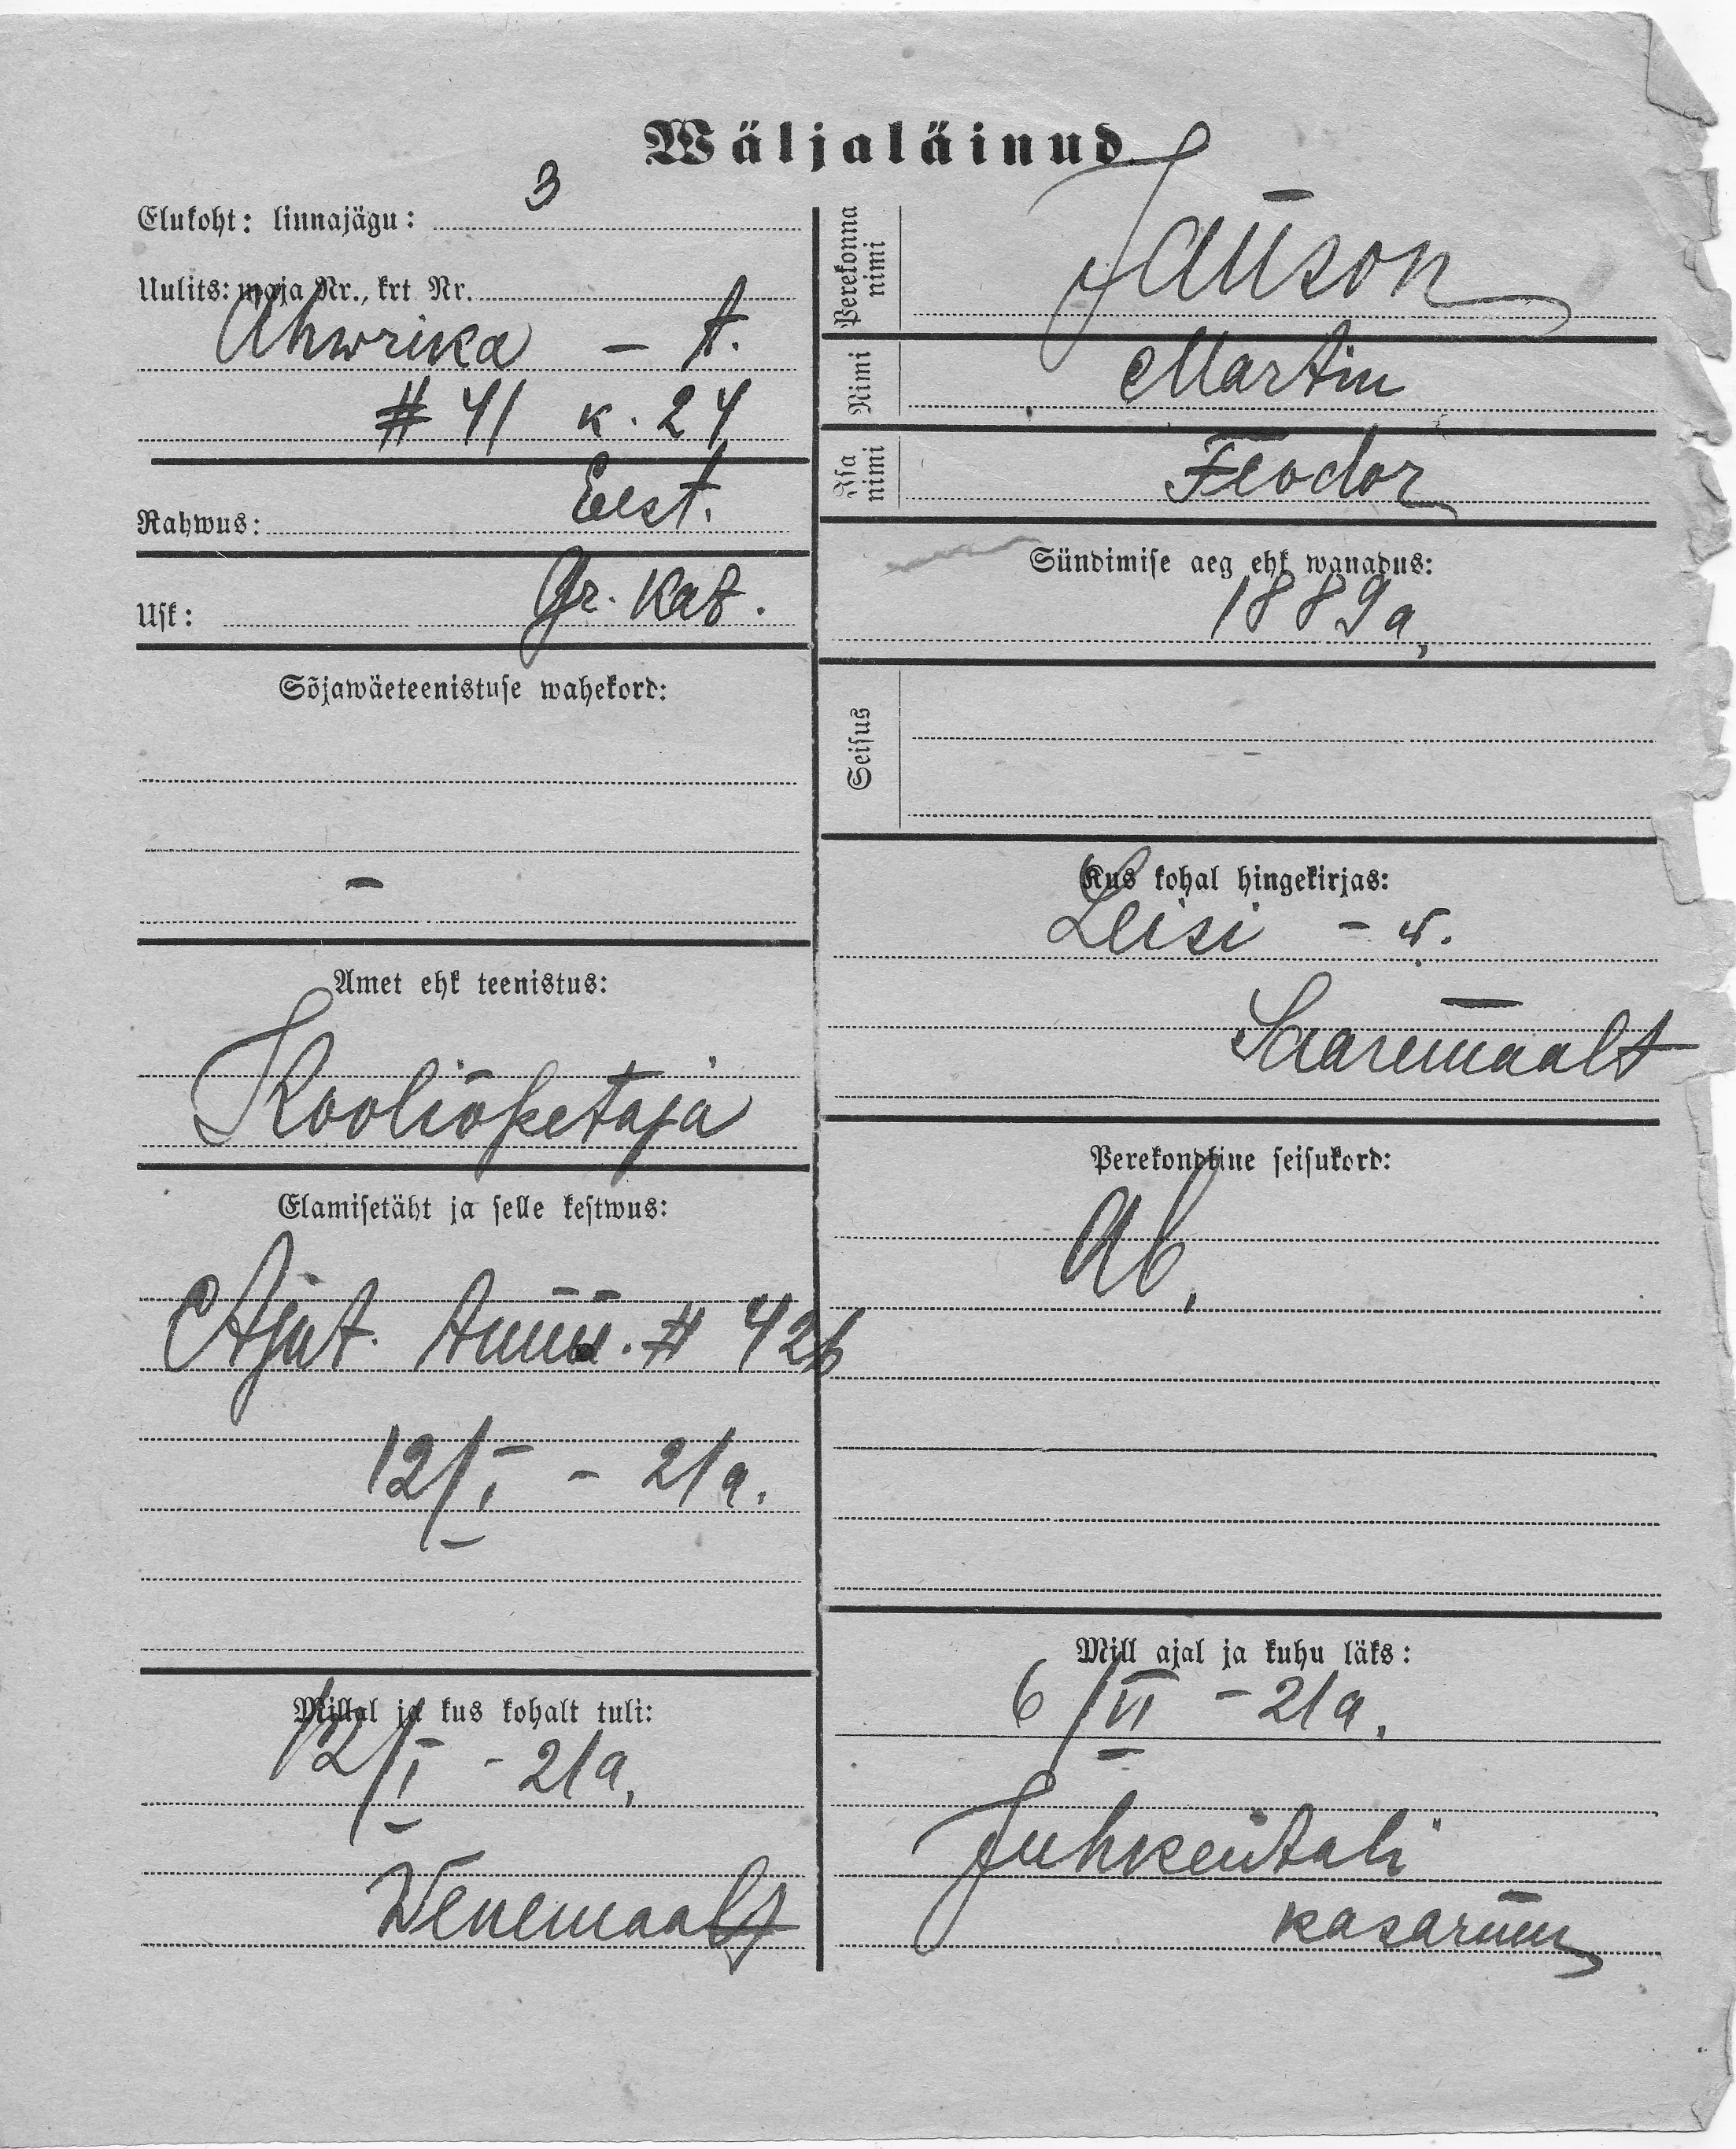 Wäljaläinud.
Elukoht: linnajägu: 3
Uulits: maja Nr., krt Nr.
Ahwrika – t.
# 41 k. 24
Rahwus: Eest.
Usk: Gr. kat.
Sõjawäeteenistuse wahekord:
–
Amet ehk teenistus:
Kooliõpetaja
Elamisetäht ja selle kestwus:
Ajut. tunn. # 426
12/I – 21a.
Millal ja kus kohalt tuli:
12/I – 21a.
Wenemaalt
Perekonna nimi
Janson
Nimi
Martin
Isa nimi
Feodor
Sündimise aeg ehk wanadus:
1889a.
Seisus
Kus kohal hingekirjas:
Leisi – w.
Saaremaalt
Perekondline seisukord:
Ab.
Mill ajal ja kuhu läks:
6/VI – 21a.
Juhkentali
kasarmu